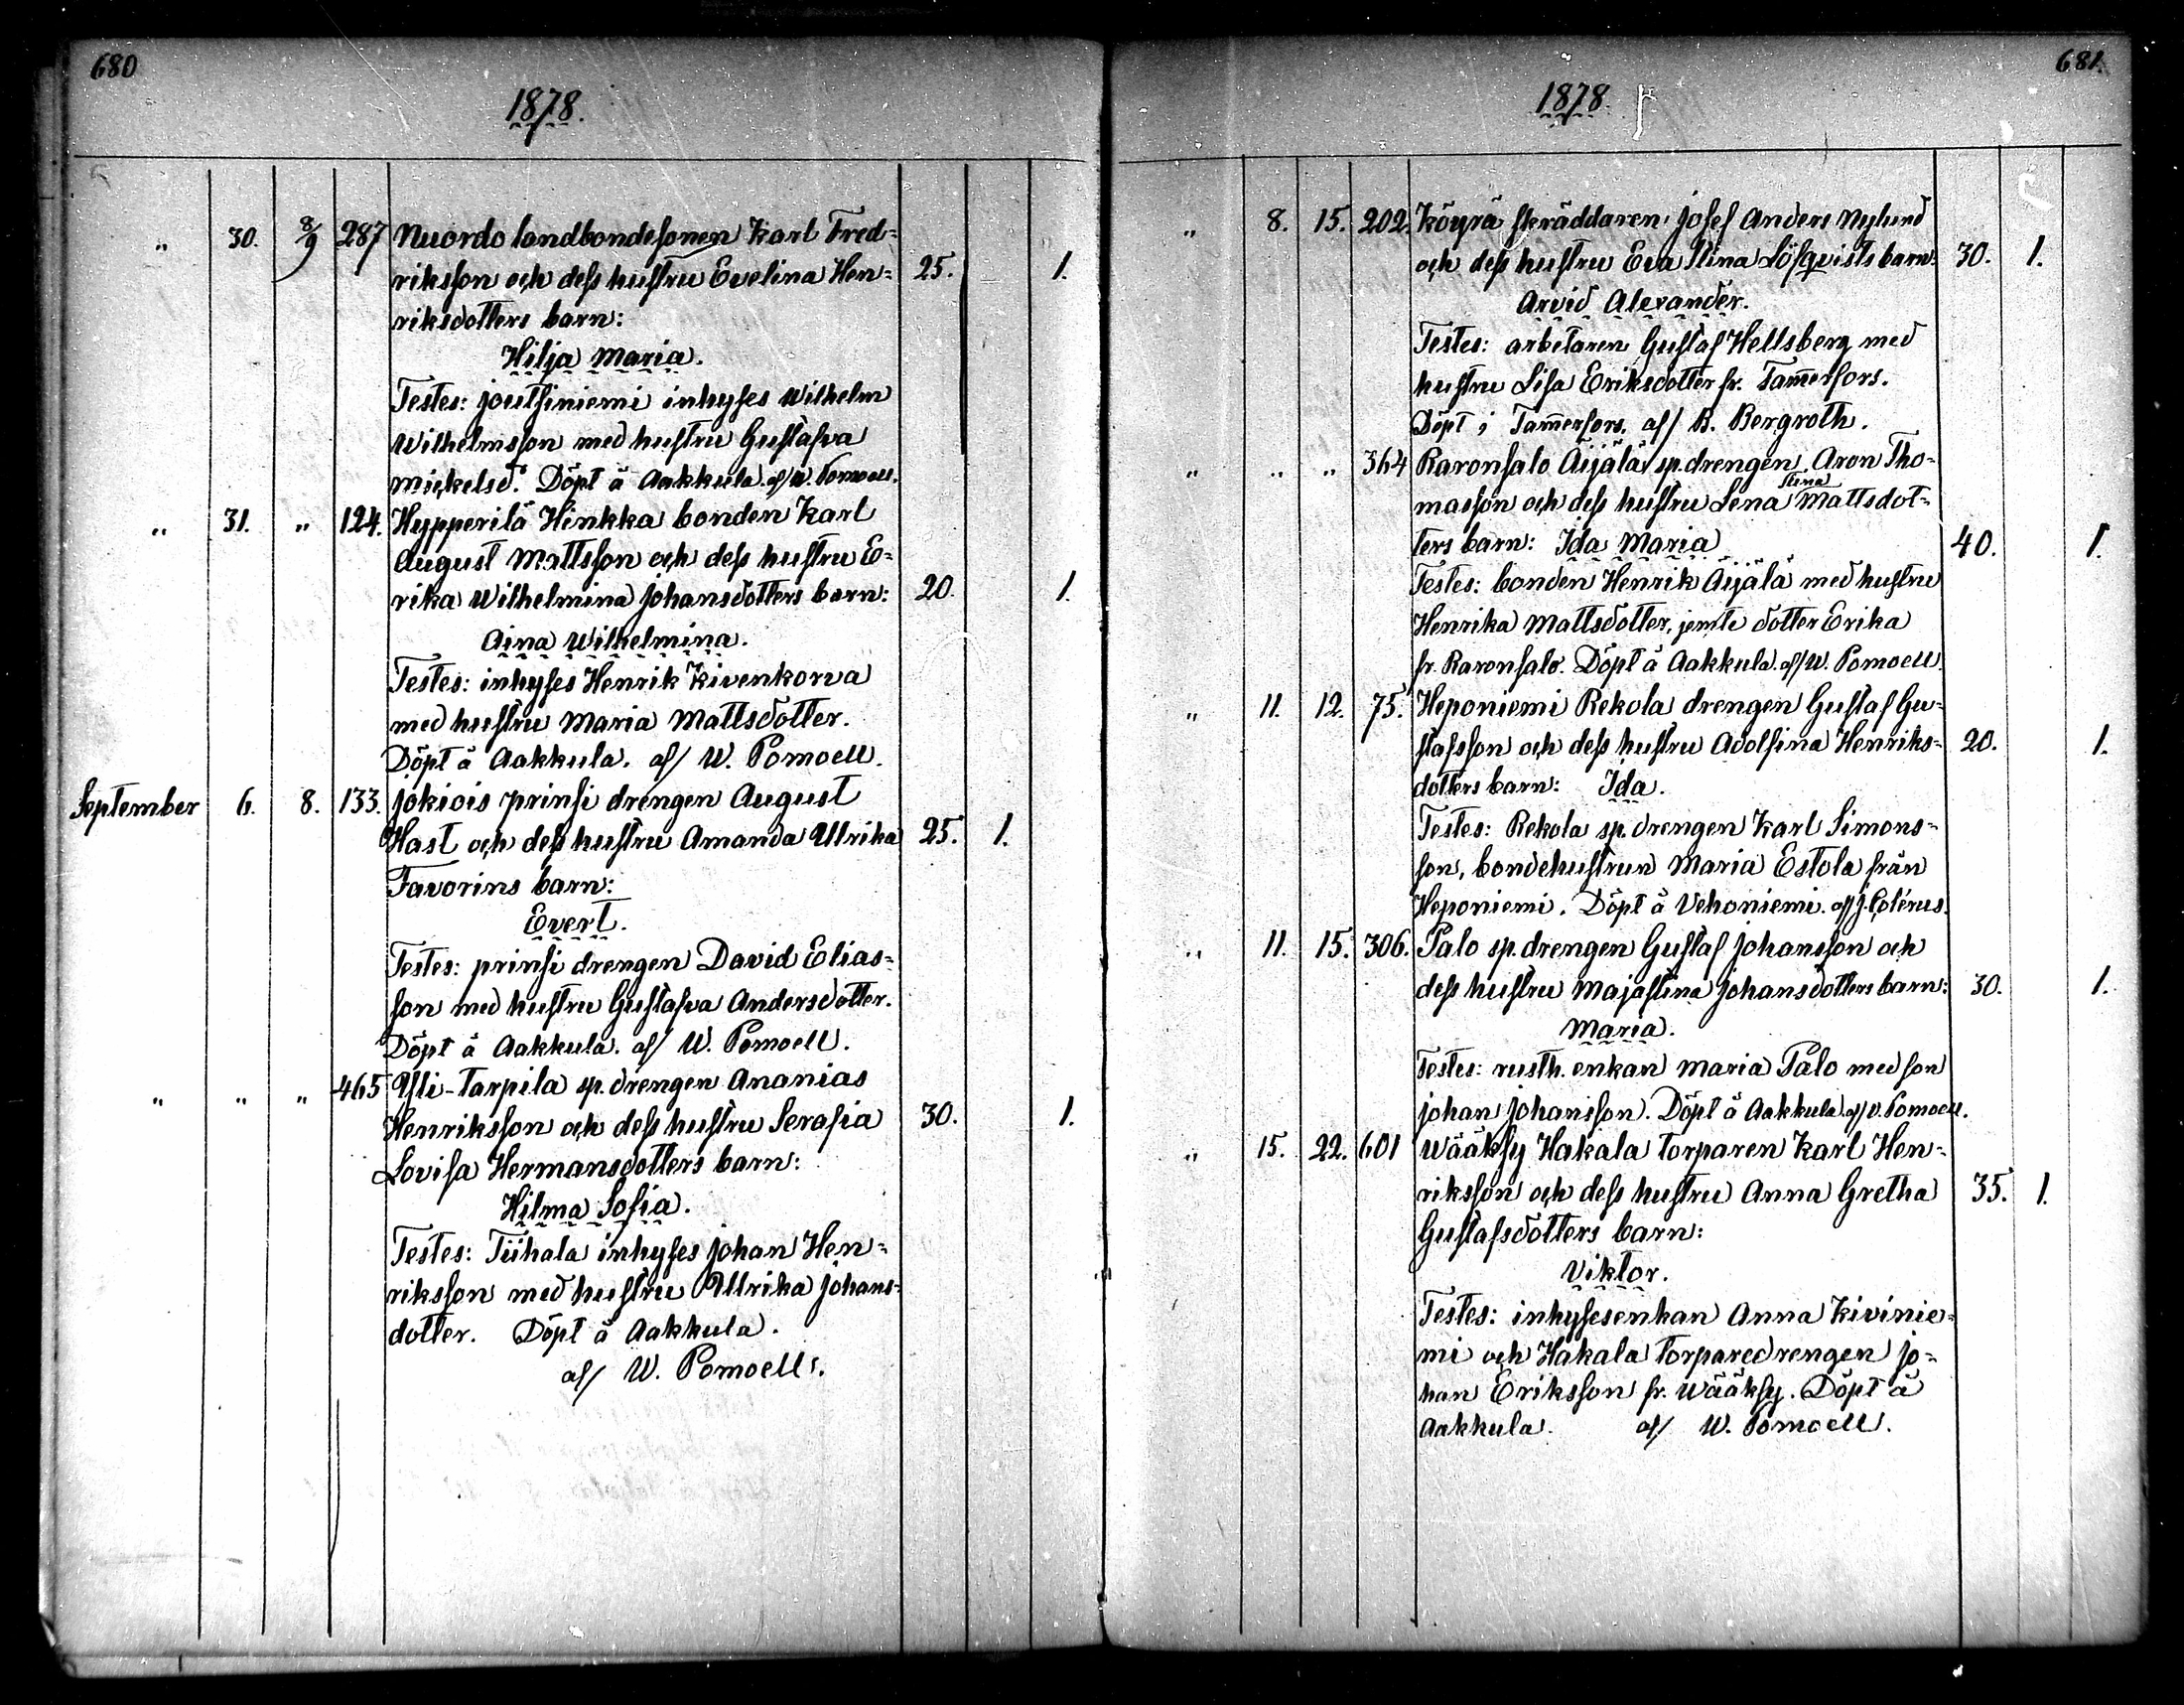 680
1878.
„ 30. 8/9 287 Nuordo landbondesonen Karl Fred=
riksson och dess hustru Evelina Hen= 25. 1.
riksdotters barn:
Hilja Maria.
Testes: Joutsiniemi inhyses Wilhelm
Wilhelmsson med hustru Gustafva
Mickelsd. Döpt å Aakkula. af/ W. Pomoell.
„ 31. „ 124. Hypperilä Hinkka bonden Karl
August Mattsson och dess hustru E=
rika Wilhelmina Johansdotters barn: 20. 1.
Aina Wilhelmina.
Testes: inhyses Henrik Kivenkorva
med hustru Maria Mattsdotter.
Döpt å Aakkula. af/ W. Pomoell.
September 6. 8. 133. Jokiois prinsi drengen August
Hast och dess hustru Amanda Ulrika 25. 1.
Favorins barn:
Evert.
Testes: prinsi drengen David Elias=
son med hustru Gustafva Andersdotter.
Döpt å Aakkula. af/ W. Pomoell.
„ „ „ 465 Yli-Tarpila sp. drengen Ananias
Henriksson och dess hustru Serafia 30. 1.
Lovisa Hermansdotters barn:
Hilma Sofia.
Testes: Tiihala inhyses Johan Hen=
riksson med hustru Ullrika Johans=
dotter. Döpt å Aakkula.
af/ W. Pomoell.
681.
1878.
„ 8. 15. 202. Köyrä skräddaren Josef Anders Nylund
och dess hustru Eva Stina Löfqvists barn: 30. 1.
Arvid Alexander.
Testes: arbetaren Gustaf Hellsberg med
hustru Lisa Eriksdotter fr. Tam̄erfors.
Döpt i Tam̄erfors. af/ B. Bergroth.
„ „ „ 364 Raronsalo Äijälä sp. drengen Aron Tho=
masson och dess hustru Lena Stina Mattsdot=
ters barn: Ida Maria 40. 1.
Testes: bonden Henrik Äijälä med hustru
Henrika Mattsdotter, jemte dotter Erika
fr. Raronsalo. Döpt å Aakkula. af/ W. Pomoell.
„ 11. 12. 75. Heponiemi Rekola drengen Gustaf Gu=
stafsson och dess hustru Adolfina Henriks= 20. 1.
dotters barn: Ida.
Testes: Rekola sp. drengen Karl Simons=
son, bondehustrun Maria Estola från
Heponiemi. Döpt å Vehoniemi. af/ J. Colérus.
„ 11. 15. 306. Palo sp. drengen Gustaf Johansson och
dess hustru Maja Stina Johansdotters barn: 30. 1.
Maria.
Testes: rusth. enkan Maria Palo med son
Johan Johansson. Döpt å Aakkula. af/ W. Pomoell.
„ 15. 22. 601 Wääksy Hakala torparen Karl Hen=
riksson och dess hustru Anna Gretha 35. 1.
Gustafsdotters barn:
Viktor.
Testes: inhysesenkan Anna Kivinie=
mi och Hakala torparedrengen Jo=
han Eriksson fr. Wääksy. Döpt å
Aakkula. af/ W. Pomoell.